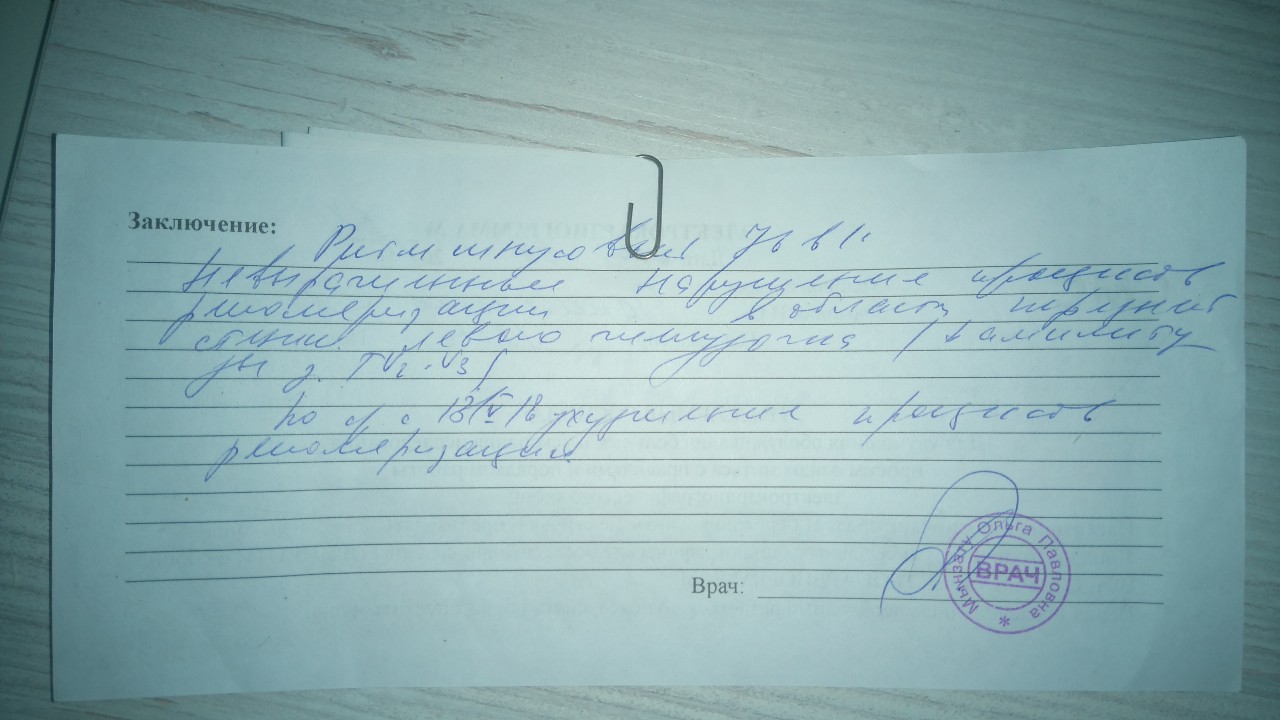 Заключение:
Ритм синусовый 76 в 1'
Невыраженные нарушения процессов
реполяризации в области передней
стенки левого желудочка (амплиту
ды з. TV2-V3)
по ср. с 13/V 18 ухудшение процессов
реполяризации.
Врач:
Мынзату Ольга Павловна
ВРАЧ